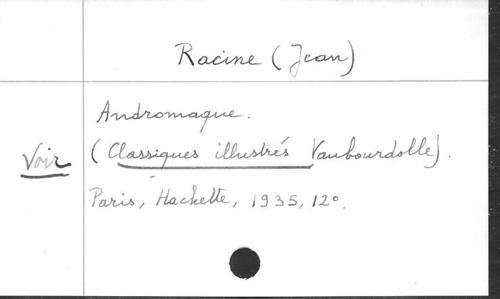 Racine (Jean)
Andromaque.
Voir (Classiques illustrés Vaubourdolle).
Paris, Hachette, 1935, 12°.